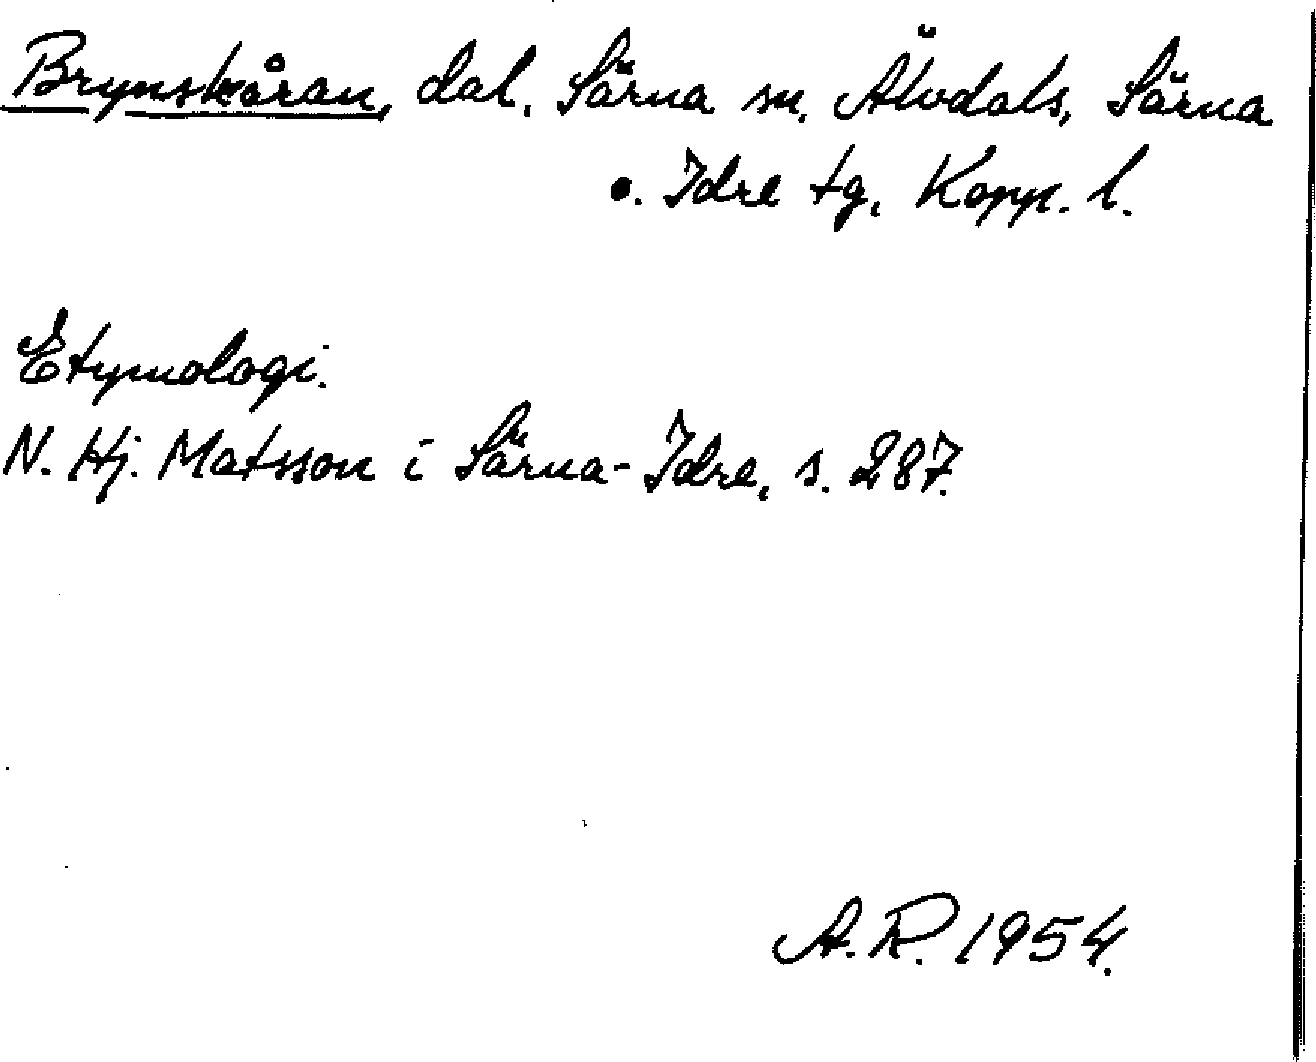 Brynskåran, dal. Särna sn. Älvdals, Särna
o. Idre tg, Kopp. l.
Etymologi.
N. Hj. Matsson i Särna-Idre, s. 287.
A.R. 1954.